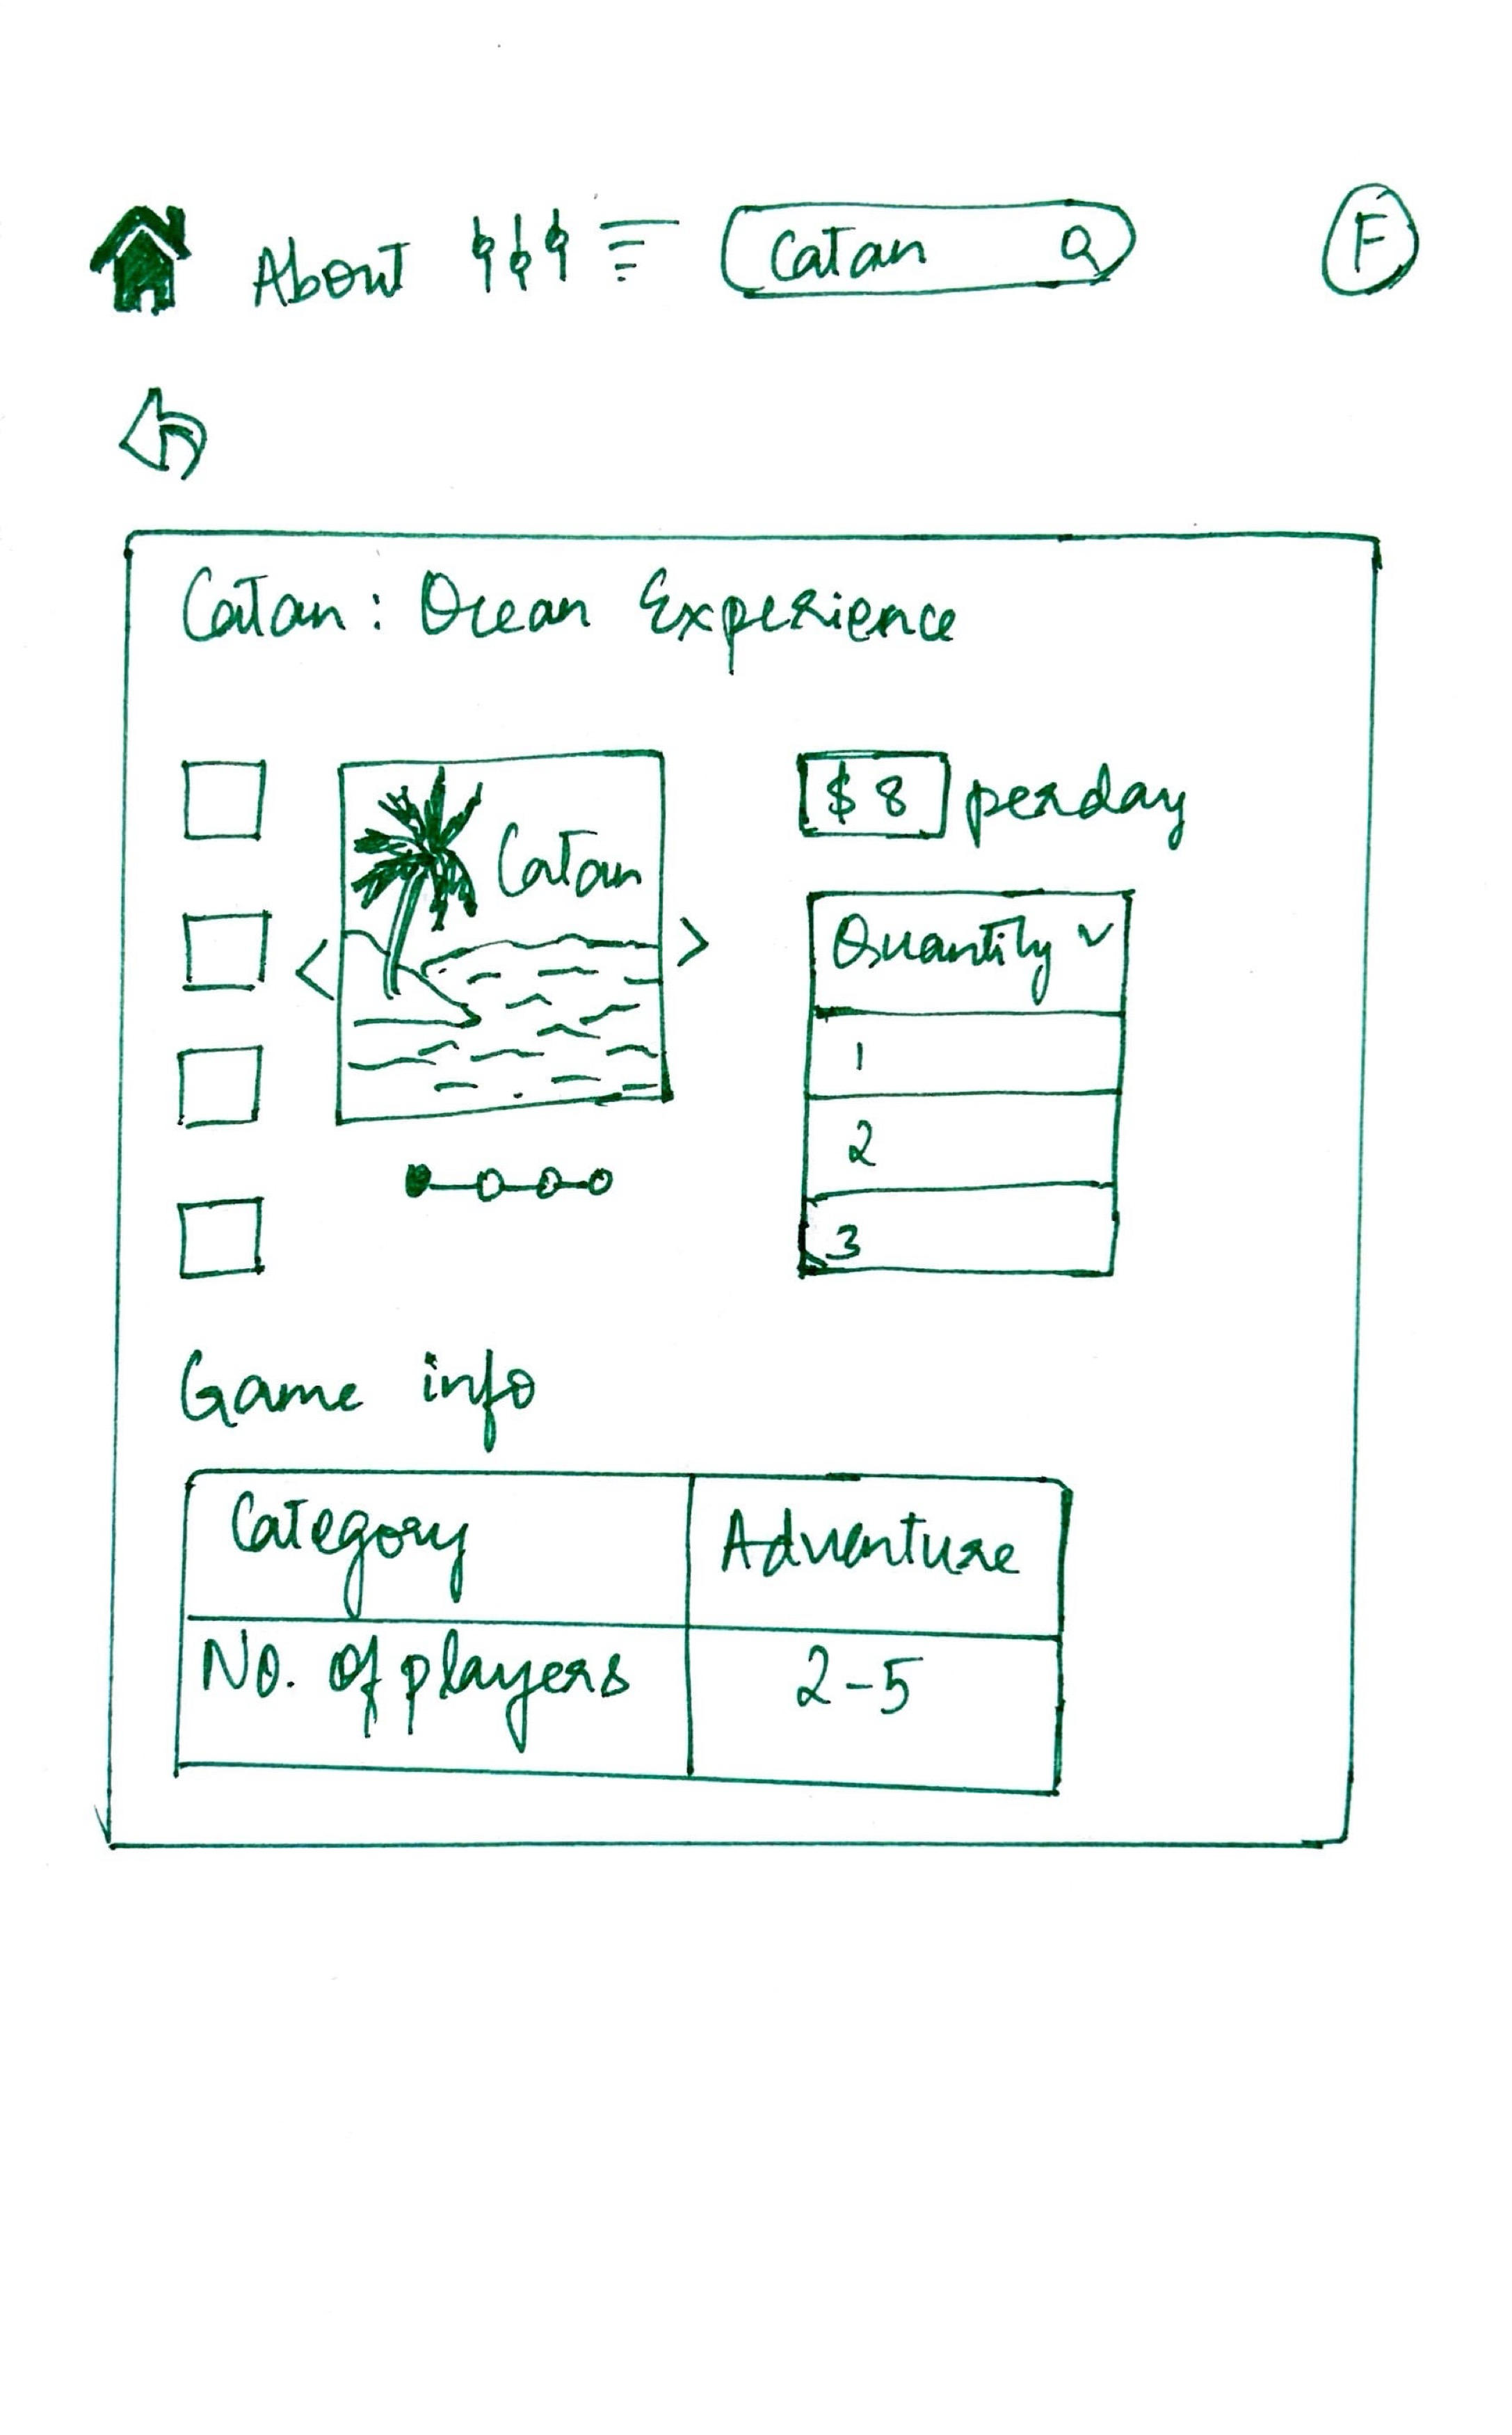 About Catan F
Catan: Ocean Experience
$8 perday
Catan
Quantity
1
2
3
Game info
Category Adventure
No. of players 2-5